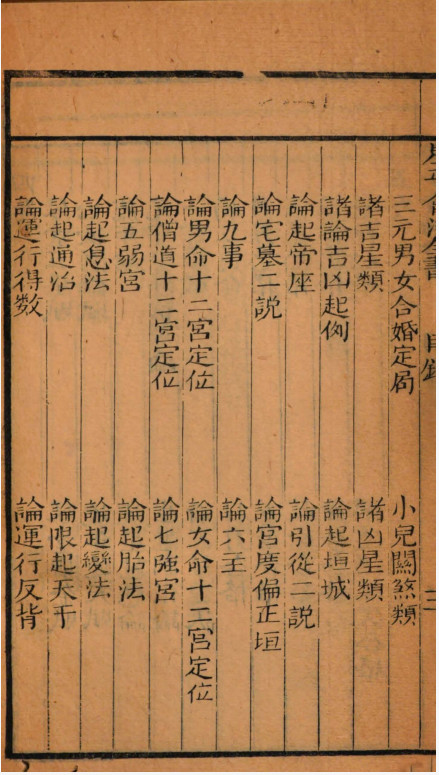 星平會海全書 目錄 二
三元男女合婚定局 小兒關煞類
諸吉星類 諸凶星類
諸論吉凶起例 論起垣城
論起帝座 論引從二説
論宅墓二説 論宮度偏正垣
論九事 論六至
論男命十二宮定位 論女命十二宮定位
論僧道十二宮定位 論七強宮
論五弱宮 論起胎法
論起息法 論起變法
論起通治 論限起天干
論運行得数 論運行反背